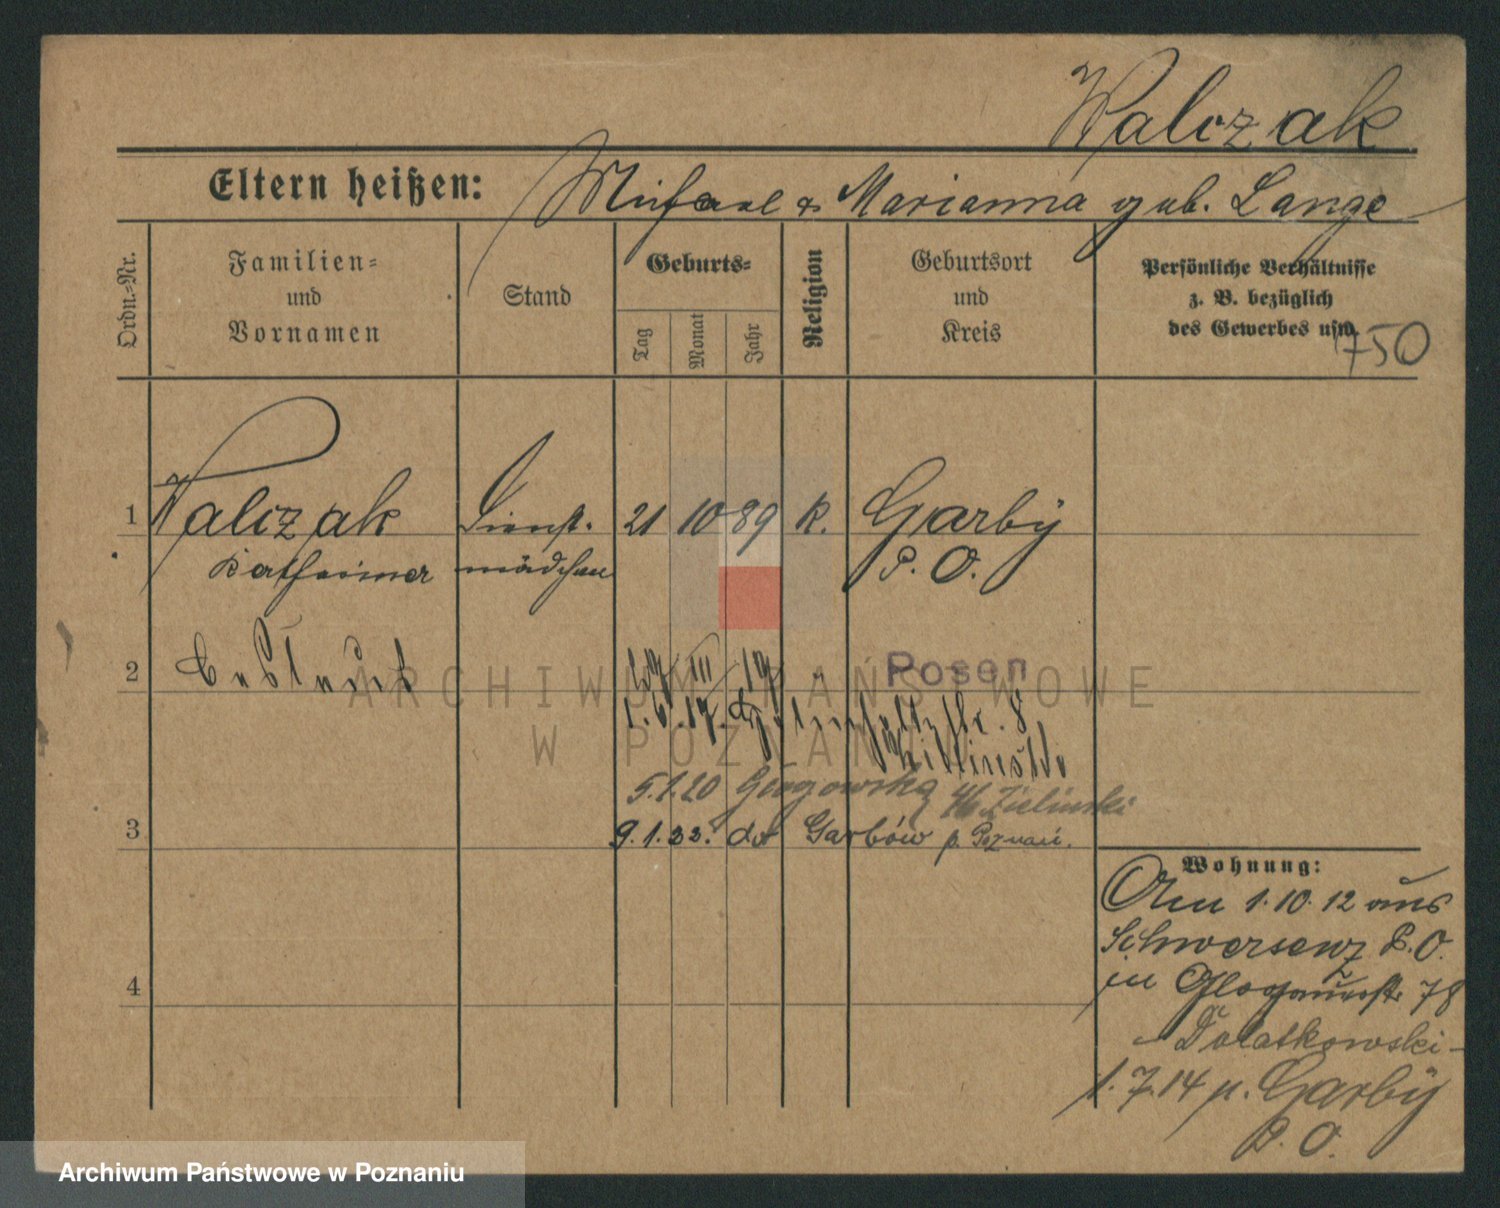 Walczak
Eltern heißen: Michael & Marianna geb. Lange
Ordn.-Nr.
Familien- und Vornamen
Stand
Geburts-
Tag
Monat
Jahr
Religion
Geburtsort und Kreis
Persönliche Verhältnisse
z. B. bezüglich
des Gewerbes usw.
750
1 Walczak Dienst- 21 10 89 k. Garby
mädchen P. O.
2 Posen
III 19
1.6.17. 8
5.1.20 Głogowska Zielinski
3 9.1.22. do Garbów p. Poznań.
Wohnung:
Am 1.10.12 aus
Schwersenz P.O.
in Glogauerstr 78
- Dolatkowski -
4
1.7.14 n. Garby
P. O.
ARCHIWUM PAŃSTWOWE
W POZNANIU
Archiwum Państwowe w Poznaniu